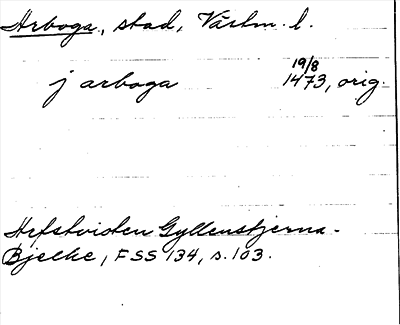 Arboga, stad, Västm. l.
j arboga 19/8 1473, orig.
Arfstvisten Gyllenstjerna-
Bjelke, FSS 134, s. 103.